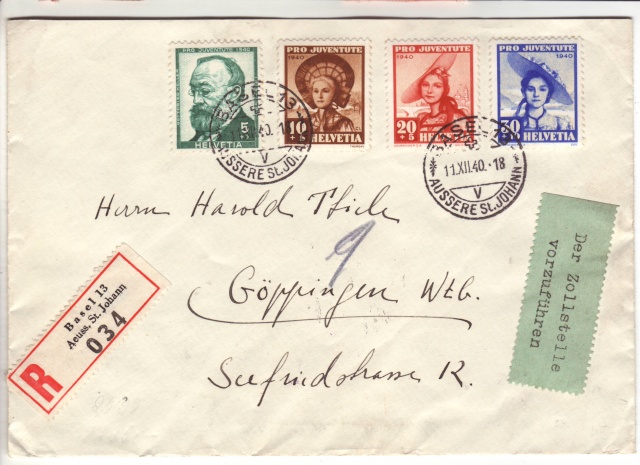 PRO JUVENTUTE 1940
5
HELVETIA
PRO JUVENTUTE
1940
10
+5
HELVETIA
PRO JUVENTUTE
1940
20
+5
HELVETIA
PRO JUVENTUTE
1940
30
HELVETIA
BASEL 13
V
ÄUSSERE St. JOHANN
BASEL
11.XII.40.-18
V
ÄUSSERE St. JOHANN
Herrn Harold
9
Göppingen Wtb.
12.
Basel 13
Aeuss. St. Johann
034
R
Der Zollstelle
vorzuführen